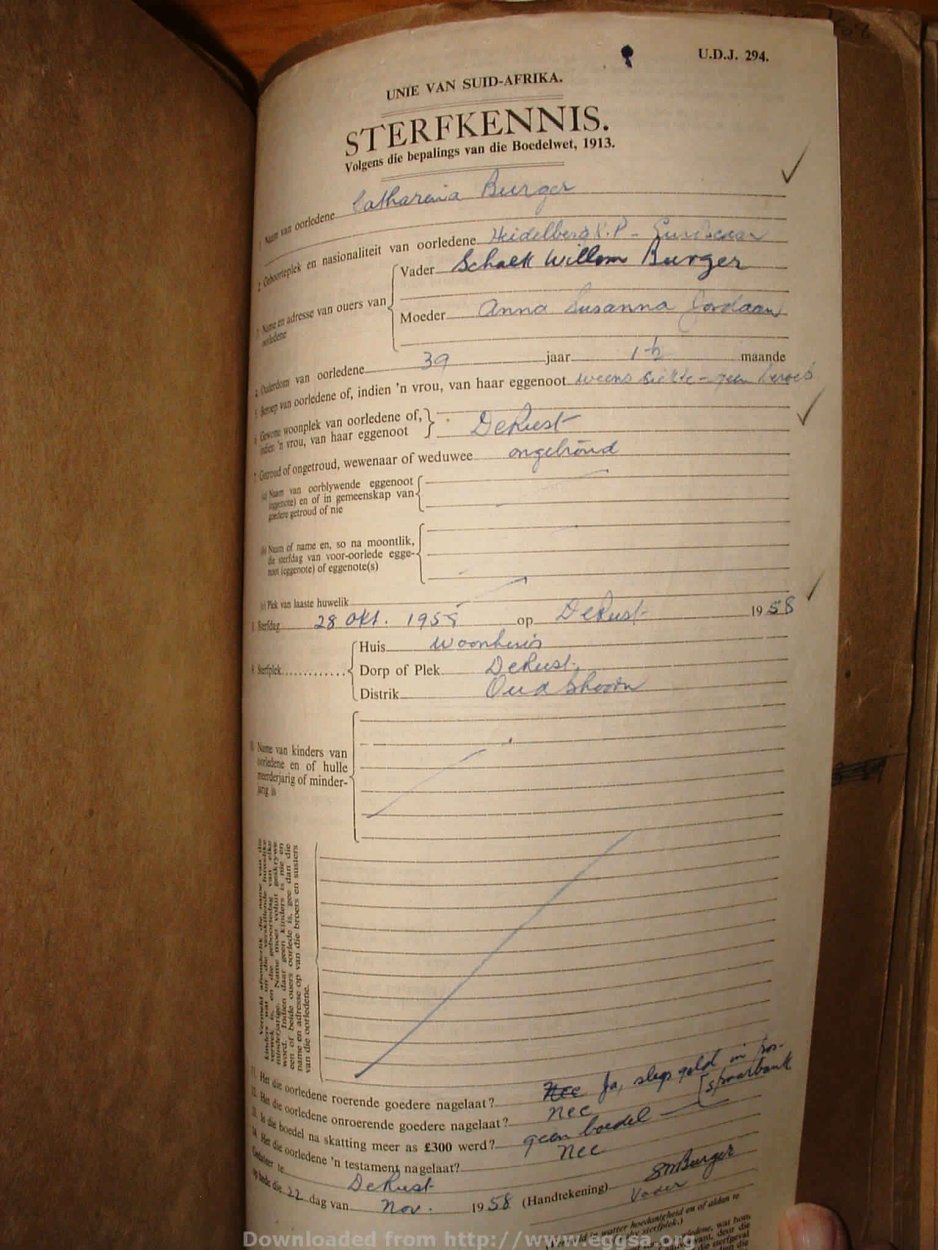 U.D.J. 294.
UNIE VAN SUID-AFRIKA.
STERFKENNIS.
Volgens die bepalings van die Boedelwet, 1913.
1 Naam van oorledene Catharina Burger
2 Geboorteplek en nasionaliteit van oorledene Heidelberg K.P -
3 Name en adresse van ouers van oorledene
Vader Schalk Willem Burger
Moeder Anna Susanna Jordaan
4 Ouderdom van oorledene 39 jaar maande
5 Beroep van oorledene of, indien 'n vrou, van haar eggenoot weens siekte - geen beroep
6 Gewone woonplek van oorledene of, indien 'n vrou, van haar eggenoot DeRust
7 Getroud of ongetroud, wewenaar of weduwee ongetroud
(a) Naam van oorblywende eggenoot
(eggenote) en of in gemeenskap van
goedere getroud of nie
(b) Naam of name en, so na moontlik,
die sterfdag van voor-oorlede egge-
noot (eggenote) of eggenote(s)
(c) Plek van laaste huwelik
8 Sterfdag 28 Okt. 1958 op DeRust 1958
9 Sterfplek
Huis woonhuis
Dorp of Plek DeRust.
Distrik Oudtshoorn
10 Name van kinders van
oorledene en of hulle
meerderjarig of minder-
jarig is
Vermeld afsonderlik die name van die
kinders wat uit die verskillende huwelike
verwek is, en die geboortedag van elke
minderjarige. Name moet voluit geskrywe
word. Indien daar geen kinders is nie en
een of beide ouers oorlede is, gee dan die
name en adresse op van die broers en susters
van die oorledene.
11. Het die oorledene roerende goedere nagelaat? Nee Ja, slegs geld in Pos-
spaarbank
12. Het die oorledene onroerende goedere nagelaat? nee
13. Is die boedel na skatting meer as £300 werd? geen boedel
14. Het die oorledene 'n testament nagelaat? nee
Gedateer te DeRust
op hede die 22 dag van Nov. 1958 (Handtekening) SWBurger
Vader
Downloaded from http://www.eggsa.org